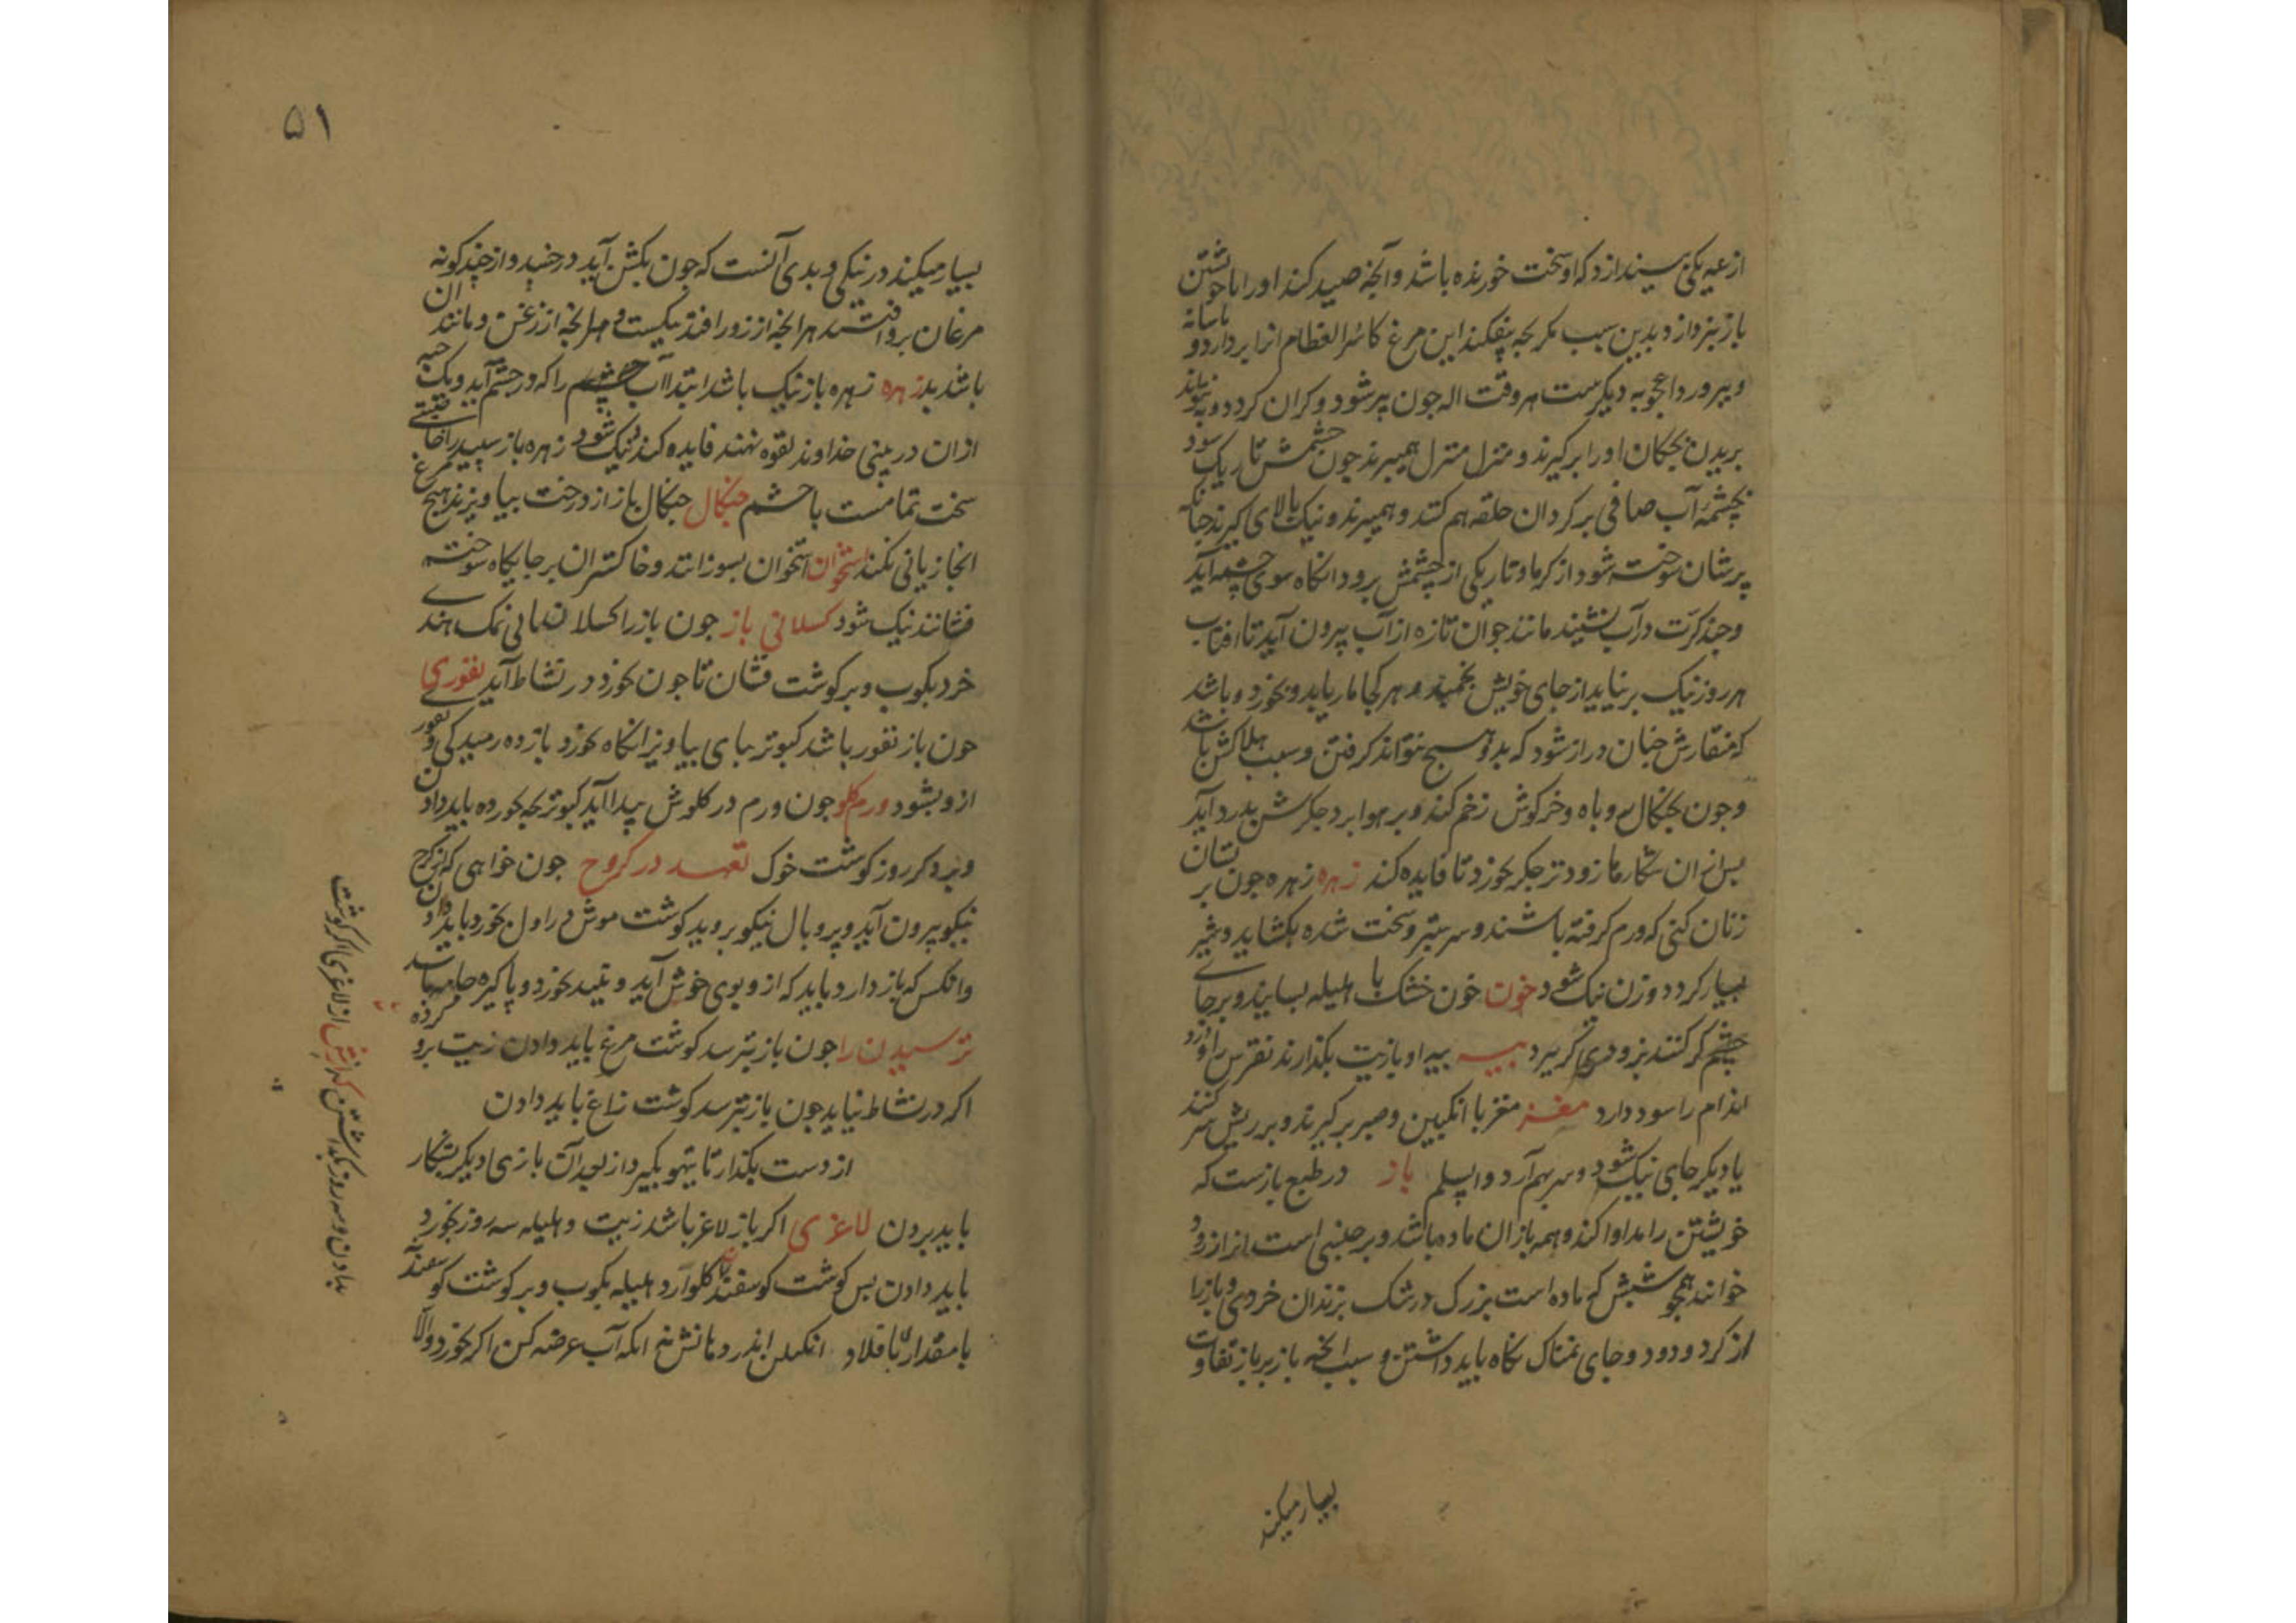 از عیه یکی بیندازد که او سخت خورنده باشد و آنچه صید کند او را با خویشتن
باز نبرد از و بدین سبب مکر بچه بیفکند این مرغ کاسر العظام انرا بردارد و باسانه
و بپرورد اعجوبه دیکرست هر وقت اله چون پر شود و کران کردد و نتواند
پریدن بچکان او را بر کیرند و منزل منزل همیبرند چون چشمش تاریک شود
بچشمه آب صافی بر کردان حلقه هم کنند و همیبرند و نیک بالای کیرند چنانکه
پرشان سوخته شود از کرما و تاریکی از چشمش برود انکاه سوی چشمه آید
و چند کرت در آب نشیند مانند جوان تازه از آب بیرون آید تا افتاب
هر روز نیک برنیاید از جای خویش نجمبد و هر کجا مار یابد و بخورد و باشد
که منقارش چنان دراز شود که بدو هیچ نتواند کرفتن و سبب هلاکش باشد
و چون بچنکال روباه و خرکوش زخم کند و بر هوا برد جکرش بدرد آید
پس از ان شکارها زودتر جکر بخورد تا فایده کند زهره زهره چون بر پستان
زنان کنی که ورم کرفته باشند و سر ستبر و سخت شده بکشاید و شیر
بسیار کردد و زن نیک شود خون خون خشک با اهلیله بسایند و بر جای
چشم کر کنند بزودی کریرد پیه پیه او بازیت بکدارند نقرس را و درد
اندام را سود دارد مغز مغز با انکبین و صبر بر کیرند و بر ریش سر کنند
یا دیکر جای نیک شود و سر بهم آرد والسلم باز در طبع بازست که
خویشتن را مداوا کند و همه بازان ماده باشد و بر جنسی است انرا زرد
خوانند همچو شبش که ماده است بزرک در شک بزندان خردمی و بازرا
از کرد و دود و جای نمناک نکاه باید داشتن و سبب انچه باز بر باز تفاوت
بسیار میکند
۵۱
بسیار میکند در نیکی و بدی آنست که چون بکش آید در جنبد و از چند کونه
مرغان برو افتند هر انچه از زور افتد نیکست و هر انچه از زغن و مانند ان
باشد بد زهره زهره باز نیک باشد ابتدا آب چشم را که در چشم آید و یک حبه
ازان در بینی خداوند لقوه نهند فایده کند نیک شود زهره باز سپید را خاصیتی
سخت تمامست با چشم چنکال چنکال باز از درخت بیاویزند هیچ مرغ
انجا زیانی نکند استخوان استخوان بسوزانند و خاکستر ان بر جایکاه سوخته
فشانند نیک شود کسلانی باز چون باز را کسلان یابی نمک هندی
خرد بکوب و بر کوشت فشان تا چون بخورد در نشاط آید نفوری
چون باز نفور باشد کبوتر بپای بیاویز انکاه بخورد باز ده رمیدکی و نفور
ازو بشود ورم کلو چون ورم در کلوش پیدا آید کبوتر بچه بخورده باید دادن
و دیکر روز کوشت خوک تعهد در کروح چون خواهی که از کرچ
نیکو بیرون آید و پر و بال نیکو بروید کوشت موش در اول بخورد باید دادن
وانکس که باز دارد باید که ازو بوی خوش آید و نبید بخورد و پاکیزه جامه باشد
ترسیدن را چون باز بترسد کوشت مرغ باید دادن زیت برو کرده
اکر در نشاط نیاید چون باز بترسد کوشت زاغ باید دادن
از دست بکذار تا تیهو بکیرد از بعد آن بازی ا دیکر بشکار
باید بردن لاغری اکر باز لاغر باشد زیت و هلیله سه روز بخورد
باید دادن پس کوشت کوسفند کلو آرد هلیله بکوب و بر کوشت کوسفند
با مقدار باقلاد انکبین اندر دهانش نه انکه آب عرضه کن اکر بخورد والا
بدادن و سه روز بکداشتن که ارش از لاغری اکر کوشت